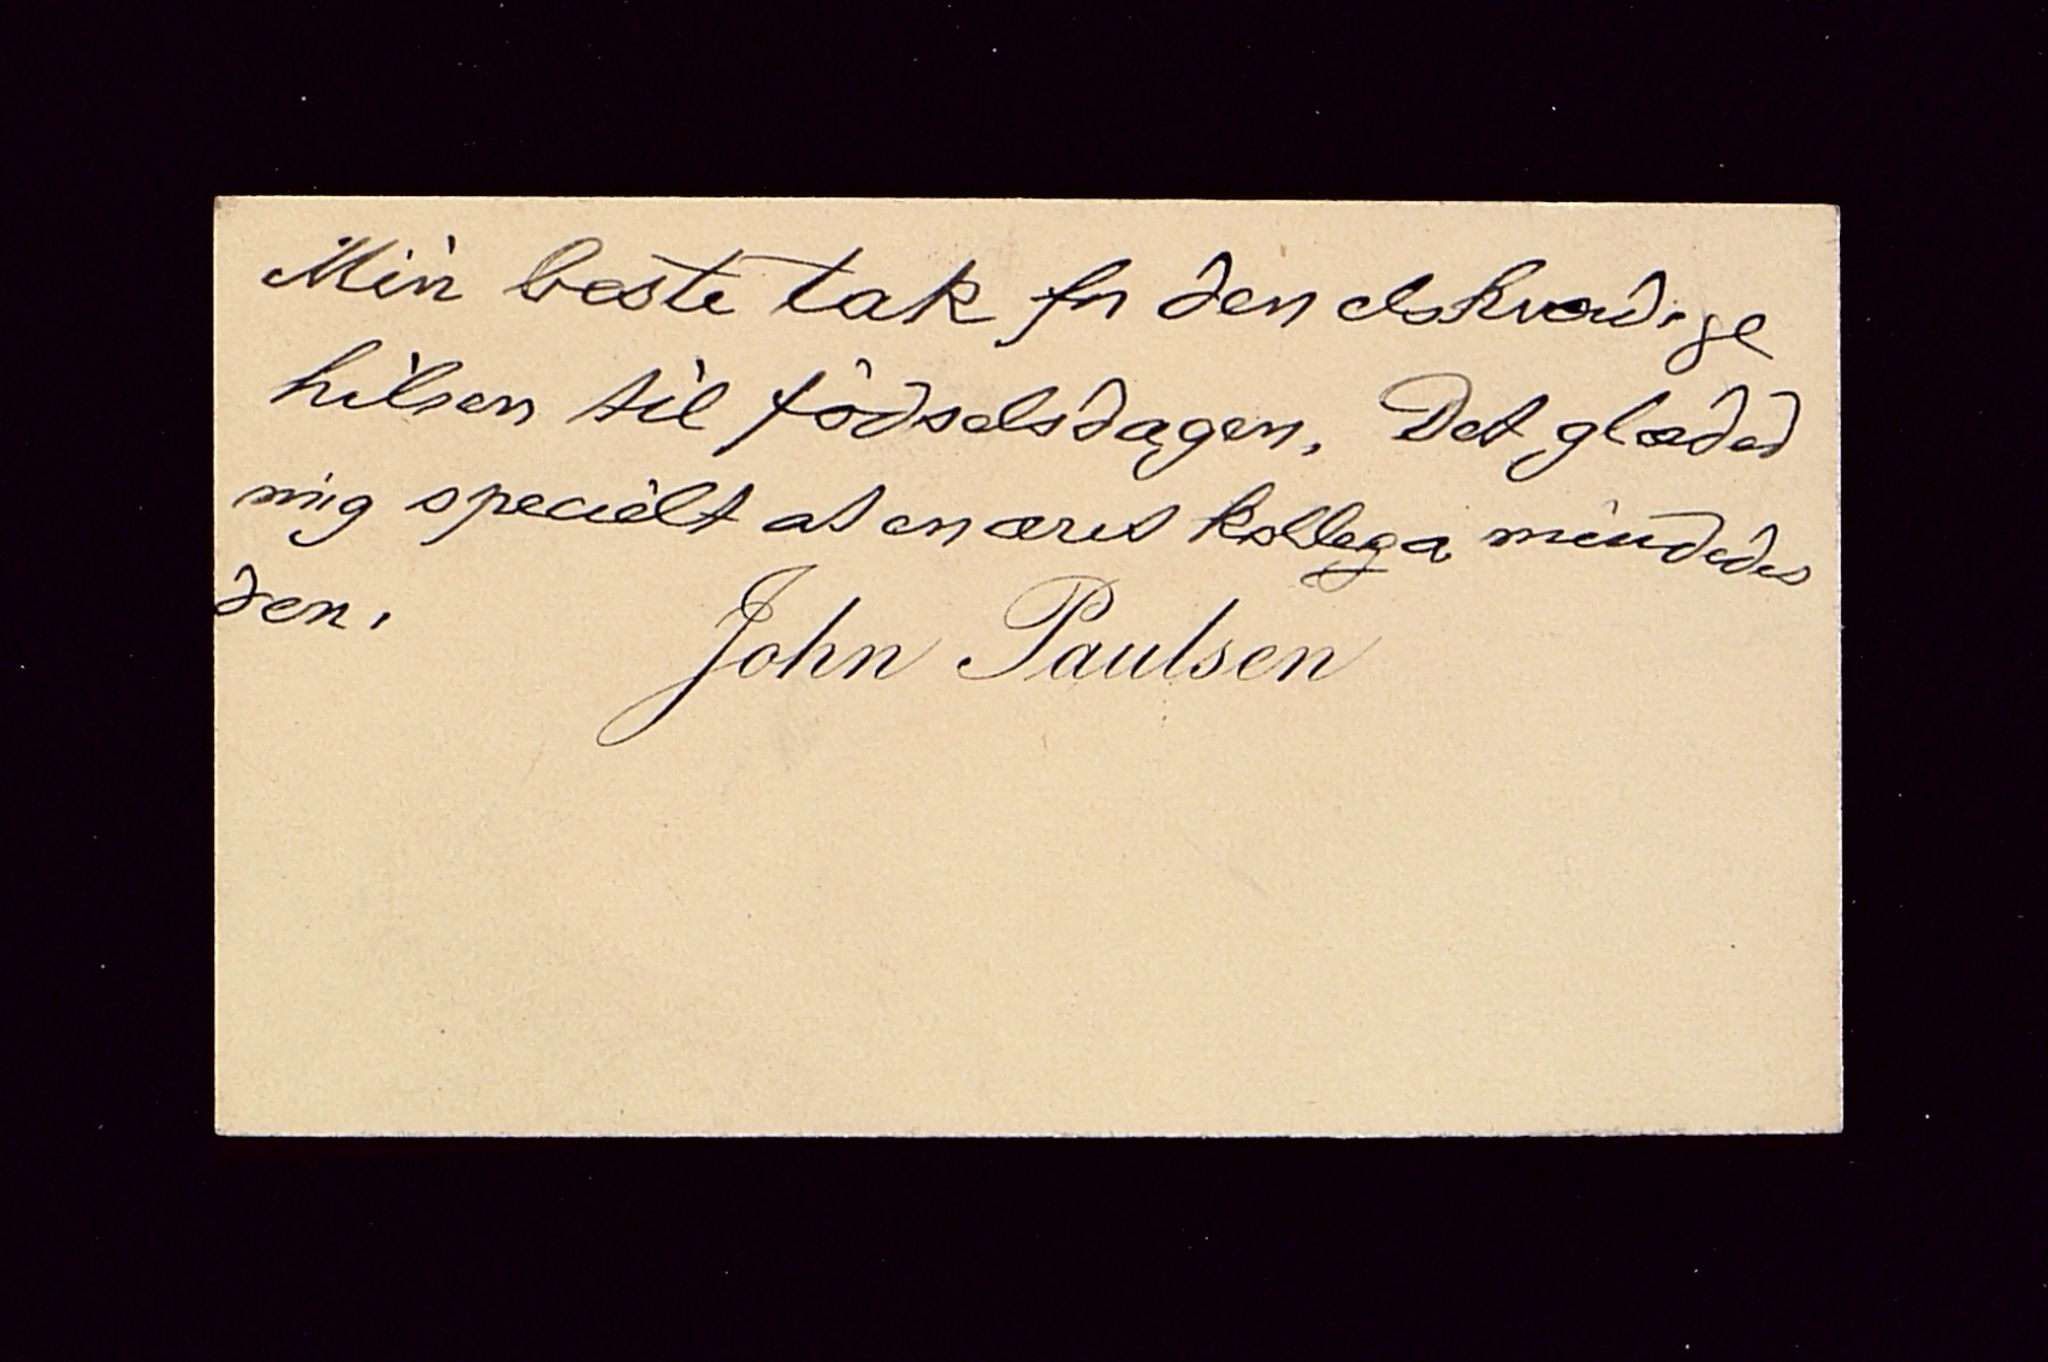 Min beste tak for den elskværdige
hilsen til fødselsdagen. Det glæded
mig specielt at en æret kollega mindedes
den.
John Paulsen